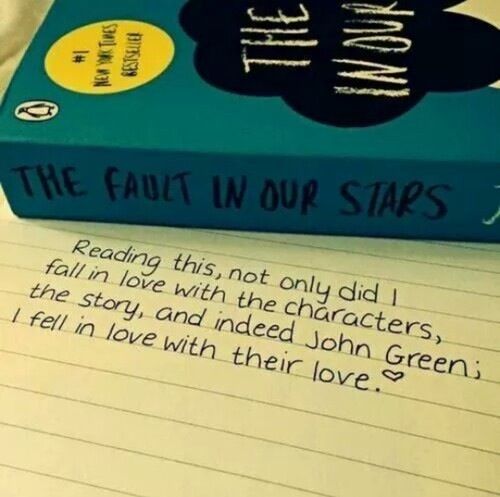 #1
NEW YORK TIMES
BESTSELLER
THE
IN OUR
THE FAULT IN OUR STARS
Reading this, not only did I
fall in love with the characters,
the story, and indeed John Green;
I fell in love with their love.♡